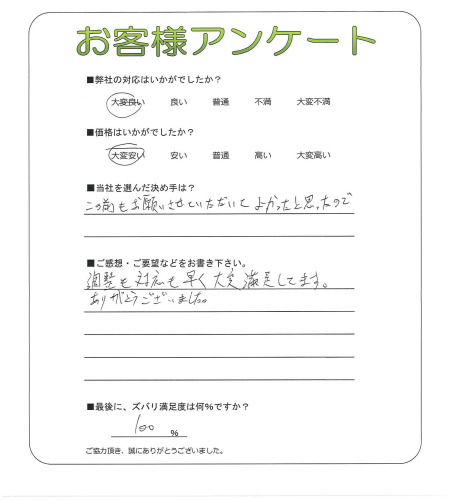 お客様アンケート
■弊社の対応はいかがでしたか?
大変良い 良い 普通 不満 大変不満
■価格はいかがでしたか?
大変安い 安い 普通 高い 大変高い
■当社を選んだ決め手は?
この前もお願いさせていただいて よかったと思ったので
■ご感想・ご要望などをお書き下さい。
調整も対応も早く大変満足してます。
ありがとうございました。
■最後に、ズバリ満足度は何%ですか?
100 %
ご協力頂き、誠にありがとうございました。